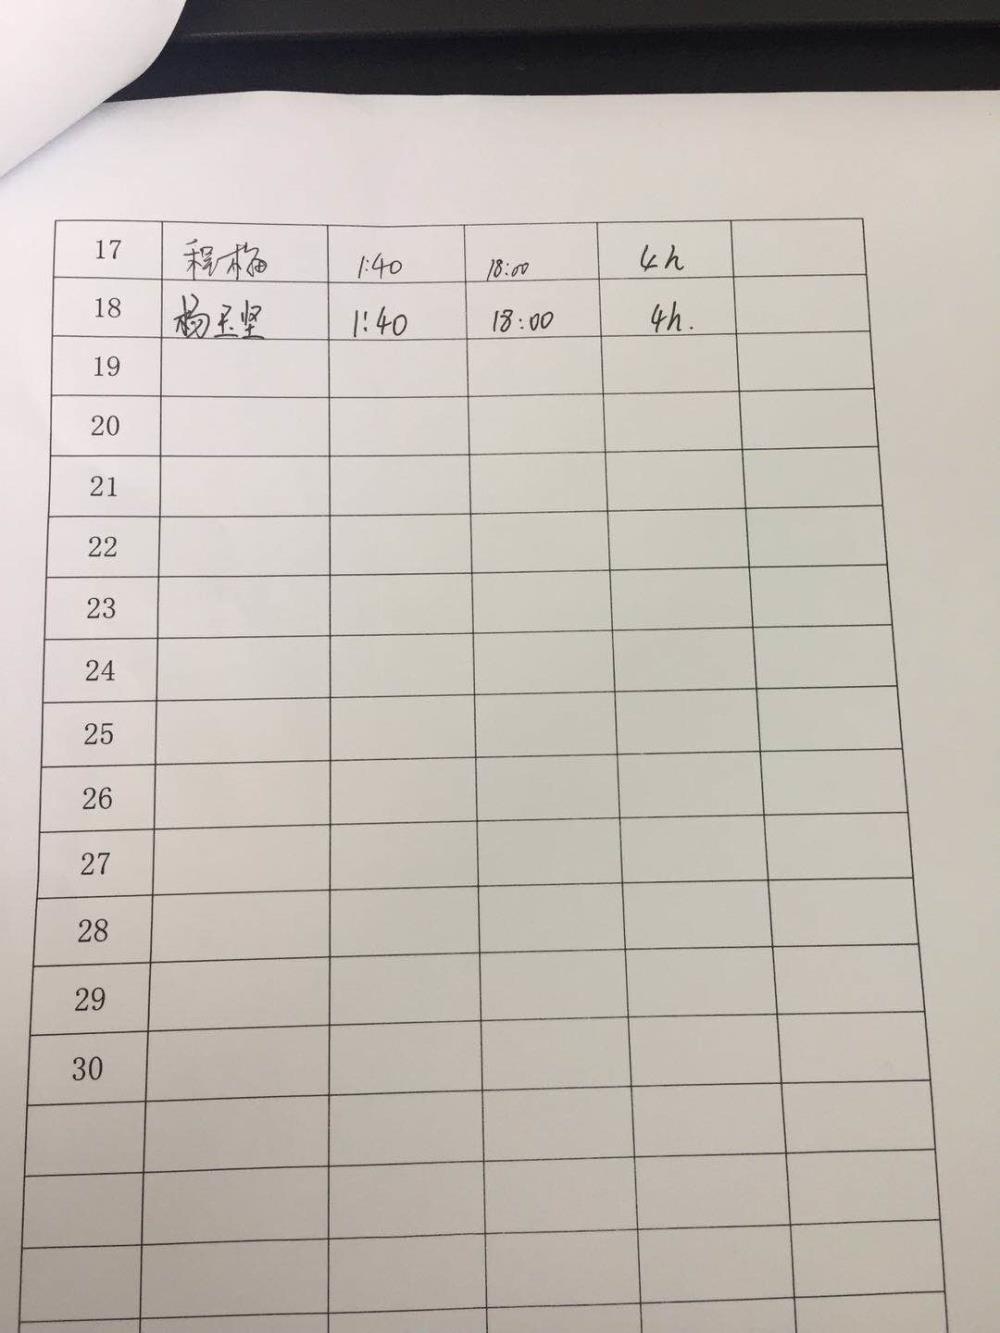 17 程梅 1:40 18:00 4h
18 杨玉坚 1:40 18:00 4h.
19
20
21
22
23
24
25
26
27
28
29
30